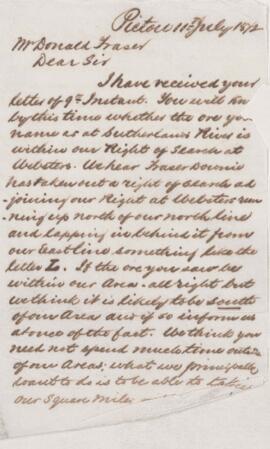 Pictou 11th July 1872
Mr Donald Fraser
Dear Sir
I have received your
letter of 9th Instant. You will
by this time whether the ore you
name as at Sutherlands River is
within our Right of Search at
Websters. We hear Fraser Downie
has taken out a right of Search ad-
joining our Right at Websters run
ning up north of our north line
and lapping in behind it from
our East line something like the
letter L. If the ore you saw be
within our Area - all right but
we think it is likely to be south
of our Area and if so inform us
at once of the fact. We think you
need not spend much time outside
of our Areas; what we principally
want to do is to be able to
our Square Mile